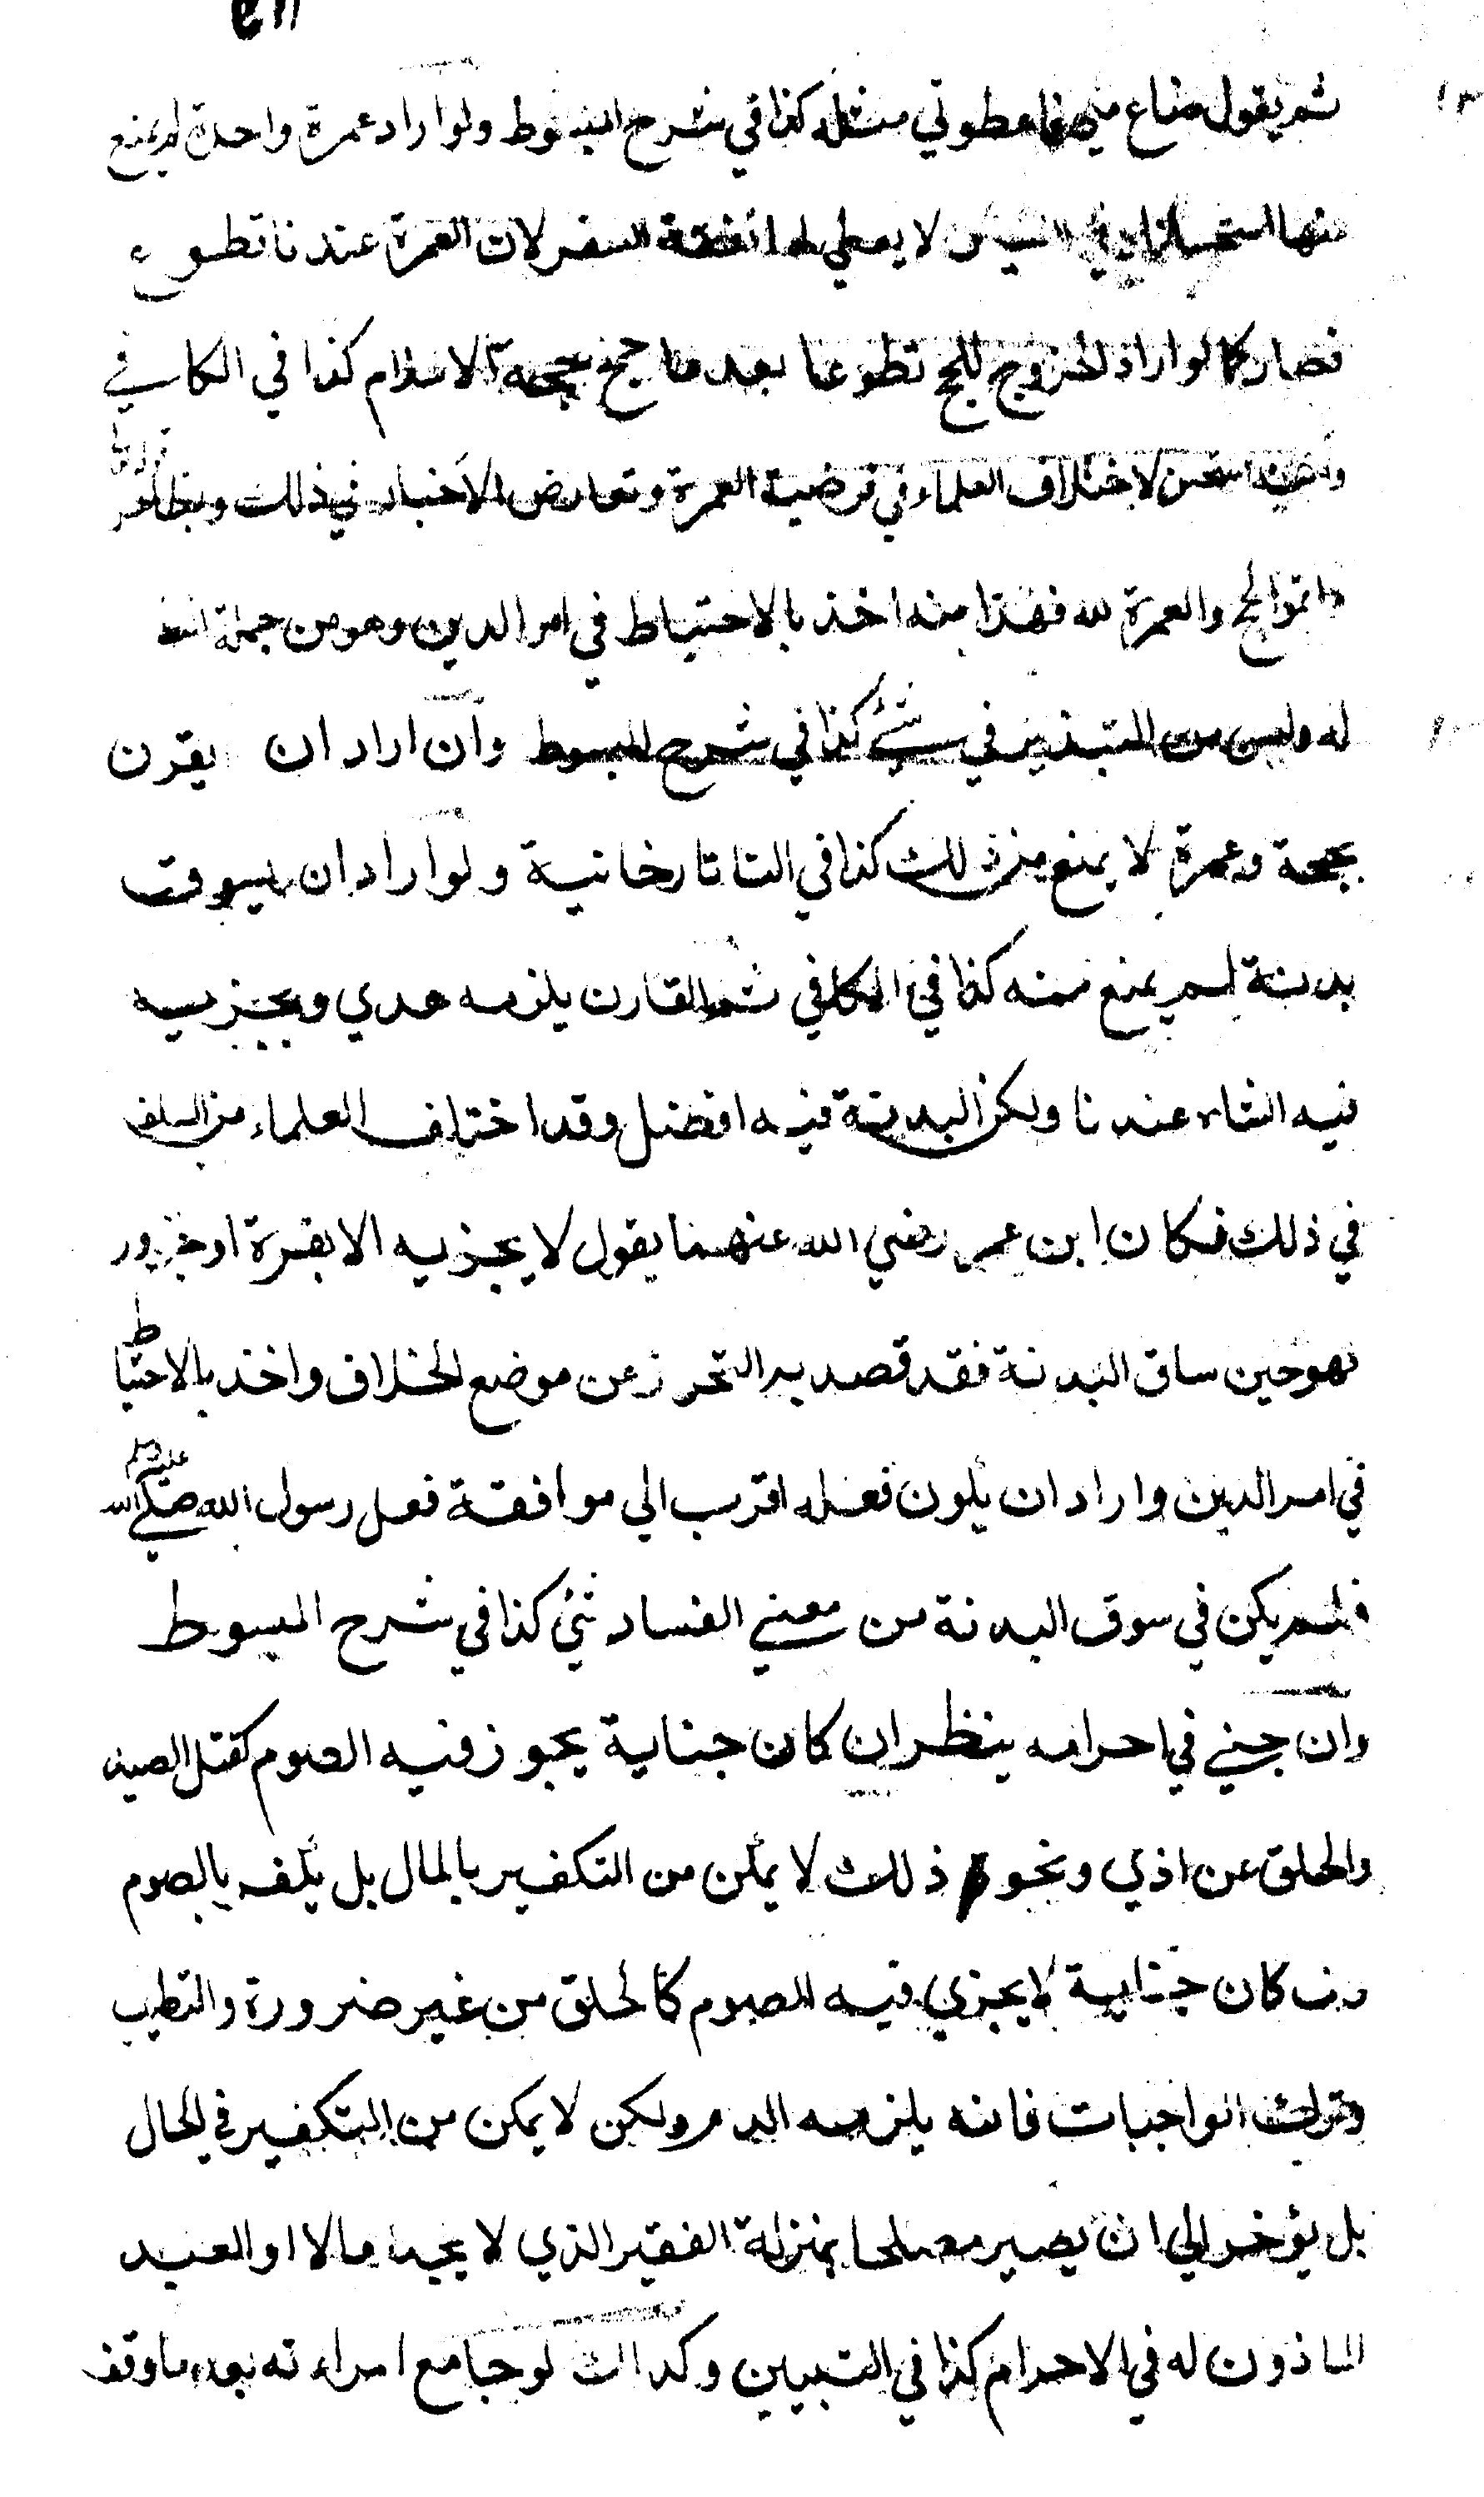 ثم يقول ضاع مني فاعطوني مثله كذا في شرح المبسوط ولو اراد عمرة واحدة لم يمنع
منها استحسانا وفي القياس لا يعطى له نفقة السفر لان العمرة عندنا تطوع
فصار كما لو اراد الخروج للحج تطوعا بعد ما حج حجة الاسلام كذا في الكافي
استحسن لاختلاف العلماء في فرضية العمرة وتعارض الاخبار في ذلك وبظاهر
واتموا الحج والعمرة لله فهذا منه اخذ بالاحتياط في امر الدين وهو من جملة
له وليس من التبذير في شيء كذا في شرح المبسوط وان اراد ان يقرن
بحجة وعمرة لا يمنع من ذلك كذا في التاتارخانية ولو اراد ان يسوق
بدنة لم يمنع منه كذا في الكافي ثم القارن يلزمه هدي ويجزيه
فيه الشاه عندنا ولكن البدنة فيه افضل وقد اختلف العلماء من السلف
في ذلك فكان ابن عمر رضي الله عنهما يقول لا يجزيه الا بقرة او جزور
فهو حين ساق البدنة فقد قصد به التحرز عن موضع الخلاف واخذ بالاحتياط
في امر الدين واراد ان يكون فعله اقرب الي موافقة فعل رسول الله صلى الله عليه وسلم
فلم يكن في سوق البدنة من معنى الفساد شئ كذا في شرح المبسوط
وان جنى في احرامه ينظر ان كان جناية يجوز فيه الصوم كقتل الصيد
والحلق عن اذي ونحو ذلك لا يمكن من التكفير بالمال بل يكفر بالصوم
وان كان جناية لا يجزي فيه الصوم كالحلق من غير ضرورة والتطيب
وترك الواجبات فانه يلزمه الدم ولكن لا يمكن من التكفير في الحال
بل يؤخر الي ان يصير مصلحا بمنزلة الفقير الذي لا يجد مالا او العبد
الماذون له في الاحرام كذا في التبيين وكذالك لو جامع امراءته بعد ما وقف